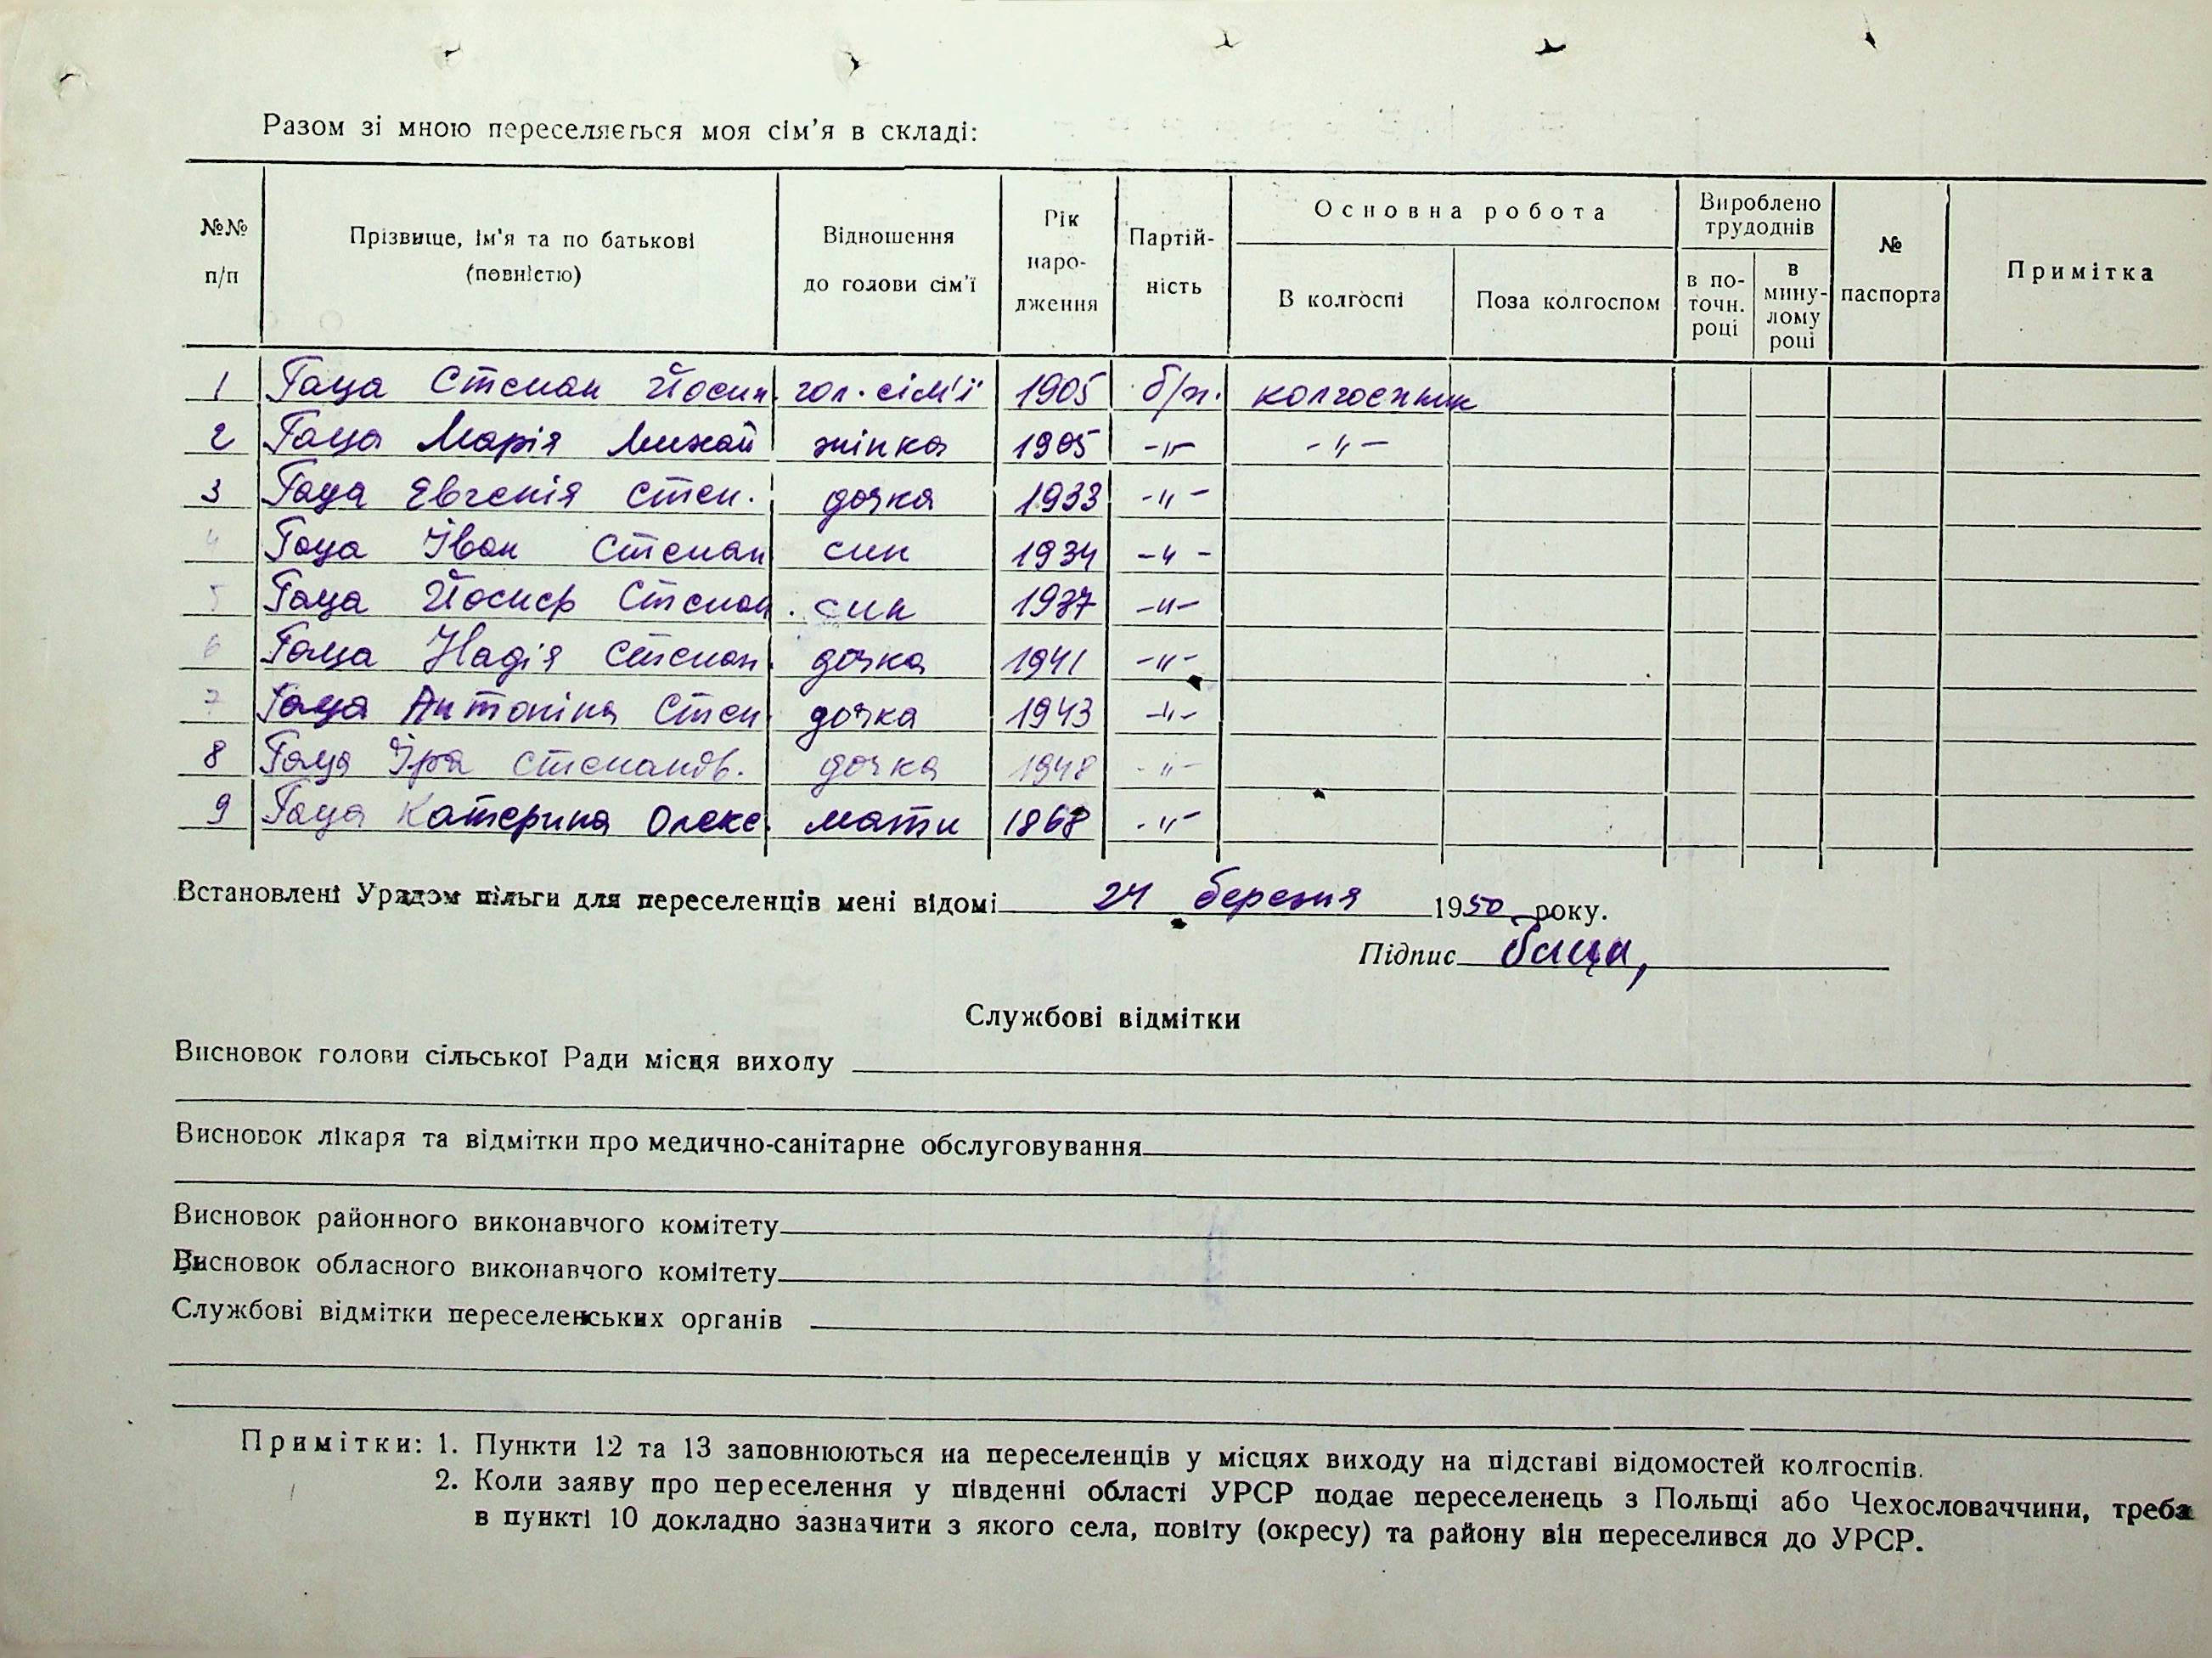 Разом зі мною переселяється моя сім'я в складі:
№№ п/п
Прізвище, ім'я та по батькові (повністю)
Відношення до голови сім'ї
Рік народження
Партійність
Основна робота
В колгоспі
Поза колгоспом
Вироблено трудоднів
в поточн. році
в минулому році
№ паспорта
Примітка
1 Гаца Степан Йосип. гол. сім'ї 1905 б/п. колгоспник
2 Гаца Марія Михай жінка 1905 -"- -"-
3 Гаца Євгенія Степ. дочка 1933 -"-
4 Гаца Іван Степан син 1934 -"-
5 Гаца Йосиф Степан. син 1937 -"-
6 Гаца Надія Степан. дочка 1941 -"-
7 Гаца Антоніна Степ дочка 1943 -"-
8 Гаца Іра Степанов. дочка 1948 -"-
9 Гаца Катерина Олекс. мати 1868 -"-
Встановлені Урядом пільги для переселенців мені відомі 24 березня 1950 року.
Підпис Гаца,
Службові відмітки
Висновок голови сільської Ради місця виходу
Висновок лікаря та відмітки про медично-санітарне обслуговування
Висновок районного виконавчого комітету
Висновок обласного виконавчого комітету
Службові відмітки переселенських органів
Примітки: 1. Пункти 12 та 13 заповнюються на переселенців у місцях виходу на підставі відомостей колгоспів.
2. Коли заяву про переселення у південні області УРСР подає переселенець з Польщі або Чехословаччини, треба
в пункті 10 докладно зазначити з якого села, повіту (окресу) та району він переселився до УРСР.